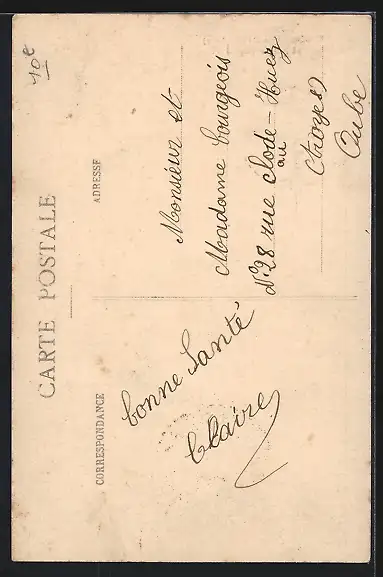 CARTE POSTALE
CORRESPONDANCE
ADRESSE
10e
bonne Santé
Claire
Monsieur et
Madame bourgeois
N° 28 rue clode - Huez
au
troyes
Aube